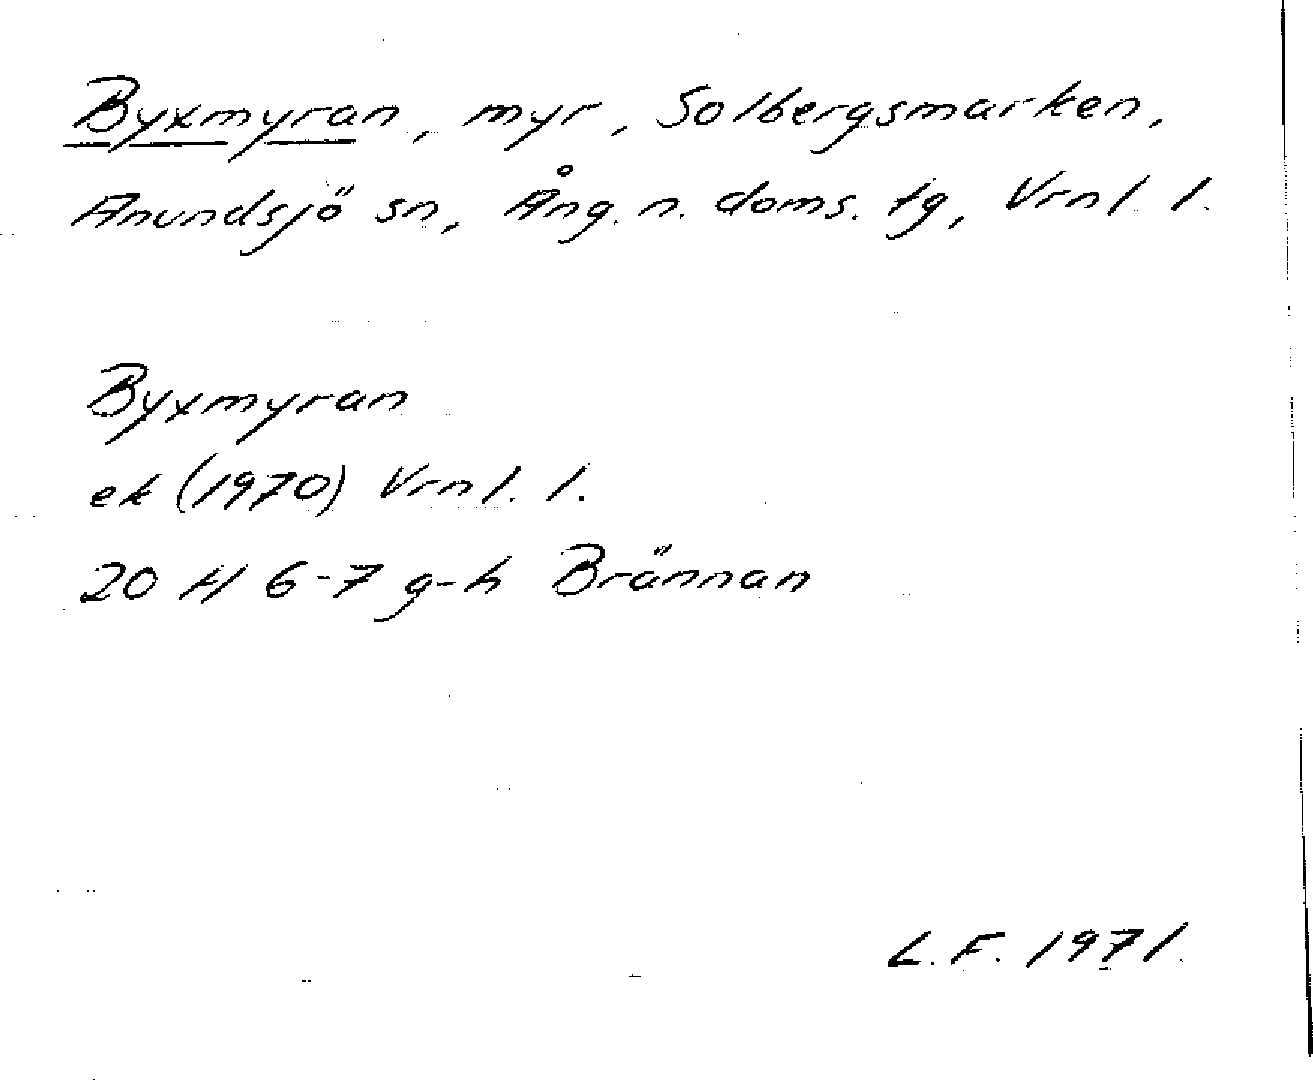 Byxmyran, myr, Solbergsmarken,
Anundsjö sn, Ång. n. doms. tg, Vrnl. l.
Byxmyran
ek (1970) Vrnl. l.
20 H 6-7 g-h Brännan
L.F. 1971.